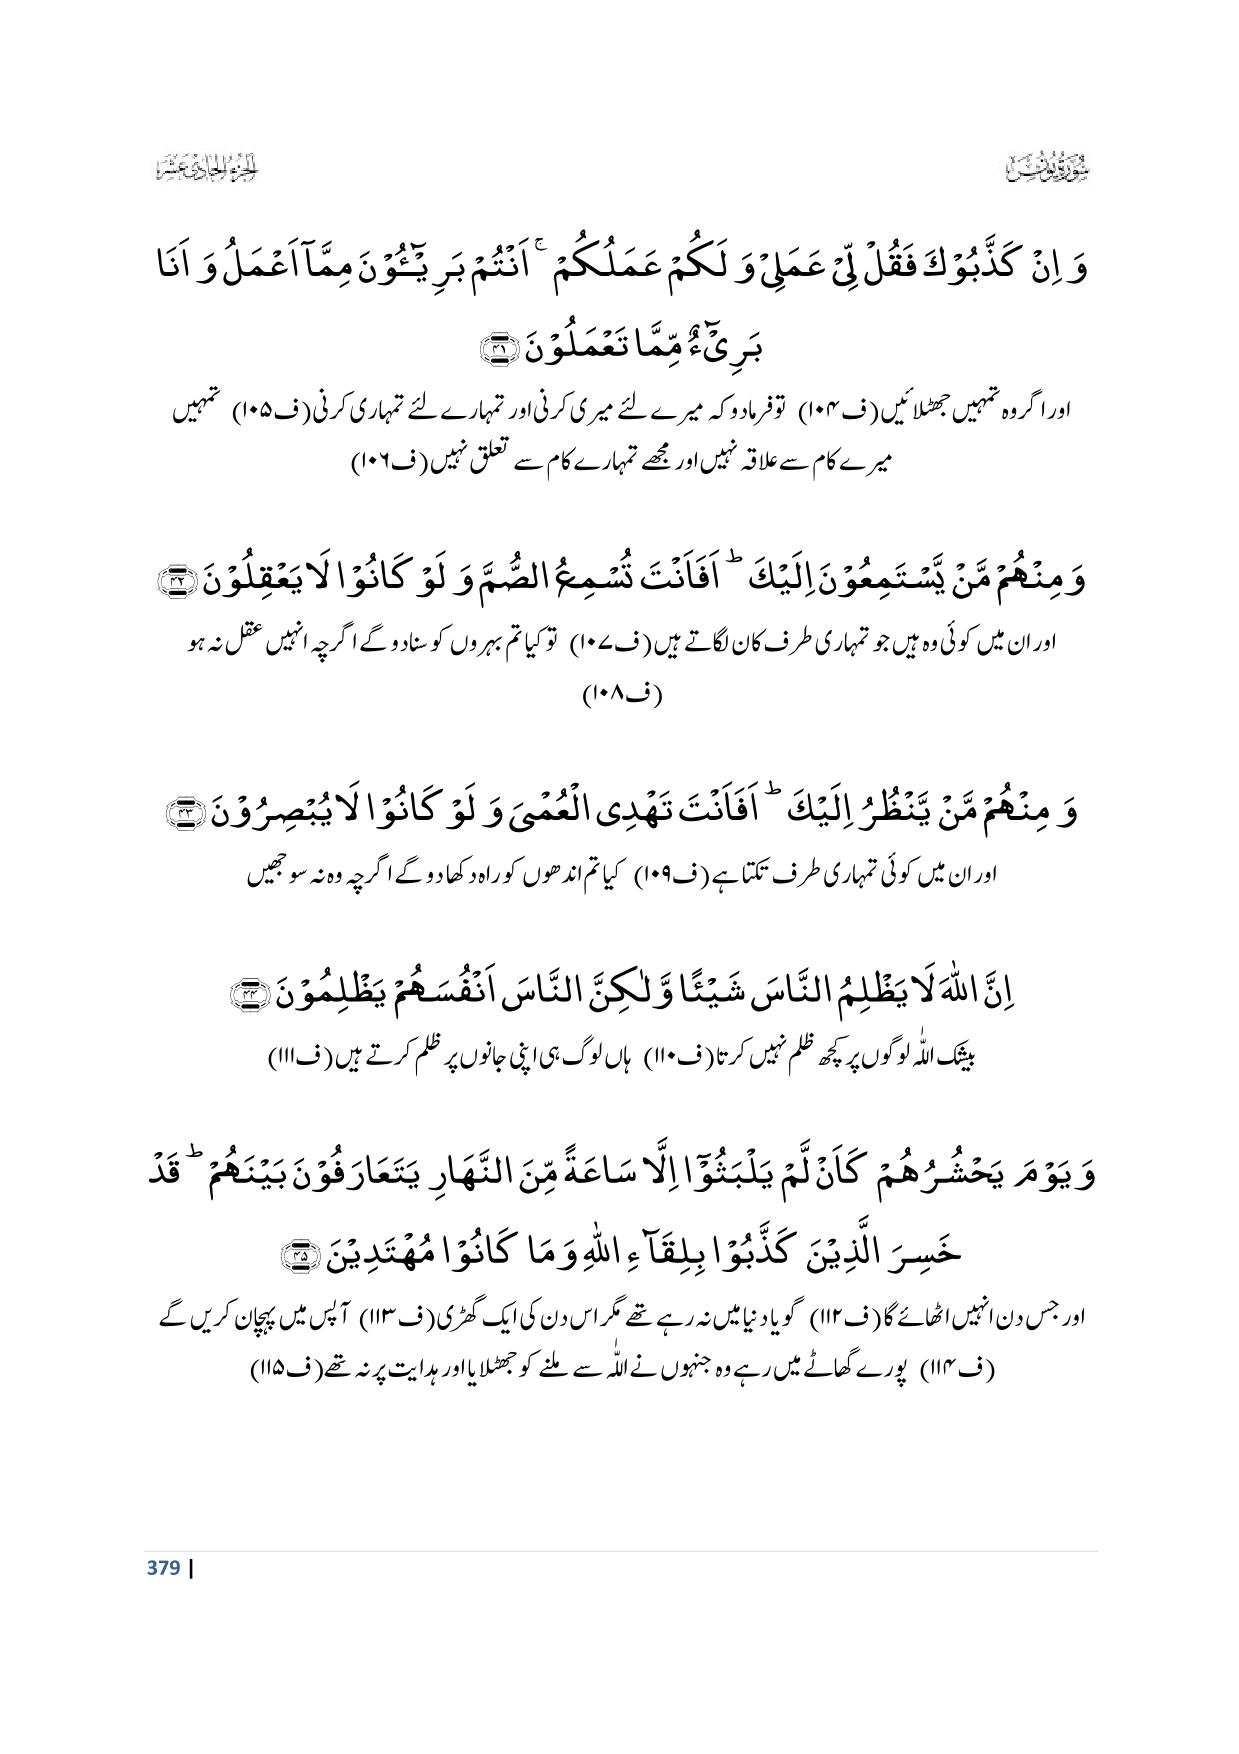 سُوۡرَةُ يُوۡنُسَ
الجزء الحادی عشر
وَ اِنۡ کَذَّبُوۡكَ فَقُلۡ لِّیۡ عَمَلِیۡ وَ لَکُمۡ عَمَلُکُمۡ ۚ اَنۡتُمۡ بَرِیۡٓـُٔوۡنَ مِمَّاۤ اَعۡمَلُ وَ اَنَا
بَرِیۡٓءٌ مِّمَّا تَعۡمَلُوۡنَ ﴿۴۱﴾
اور اگر وہ تمہیں جھٹلائیں (ف۱۰۴) تو فرمادو کہ میرے لئے میری کرنی اور تمہارے لئے تمہاری کرنی (ف۱۰۵) تمہیں
میرے کام سے علاقہ نہیں اور مجھے تمہارے کام سے تعلق نہیں (ف۱۰۶)
وَ مِنۡهُمۡ مَّنۡ یَّسۡتَمِعُوۡنَ اِلَیۡكَ ؕ اَفَاَنۡتَ تُسۡمِعُ الصُّمَّ وَ لَوۡ کَانُوۡا لَا یَعۡقِلُوۡنَ ﴿۴۲﴾
اور ان میں کوئی وہ ہیں جو تمہاری طرف کان لگاتے ہیں (ف۱۰۷) تو کیا تم بہروں کو سنادو گے اگرچہ انہیں عقل نہ ہو
(ف۱۰۸)
وَ مِنۡهُمۡ مَّنۡ یَّنۡظُرُ اِلَیۡكَ ؕ اَفَاَنۡتَ تَهۡدِی الۡعُمۡیَ وَ لَوۡ کَانُوۡا لَا یُبۡصِرُوۡنَ ﴿۴۳﴾
اور ان میں کوئی تمہاری طرف تکتا ہے (ف۱۰۹) کیا تم اندھوں کو راہ دکھادو گے اگرچہ وہ نہ سوجھیں
اِنَّ اللّٰهَ لَا یَظۡلِمُ النَّاسَ شَیۡئًا وَّلٰکِنَّ النَّاسَ اَنۡفُسَهُمۡ یَظۡلِمُوۡنَ ﴿۴۴﴾
بیشک اللہ لوگوں پر کچھ ظلم نہیں کرتا (ف۱۱۰) ہاں لوگ ہی اپنی جانوں پر ظلم کرتے ہیں (ف۱۱۱)
وَ یَوۡمَ یَحۡشُرُهُمۡ کَاَنۡ لَّمۡ یَلۡبَثُوۡۤا اِلَّا سَاعَةً مِّنَ النَّهَارِ یَتَعَارَفُوۡنَ بَیۡنَهُمۡ ؕ قَدۡ
خَسِرَ الَّذِیۡنَ کَذَّبُوۡا بِلِقَآءِ اللّٰهِ وَ مَا کَانُوۡا مُهۡتَدِیۡنَ ﴿۴۵﴾
اور جس دن انہیں اٹھائے گا (ف۱۱۲) گویا دنیا میں نہ رہے تھے مگر اس دن کی ایک گھڑی (ف۱۱۳) آپس میں پہچان کریں گے
(ف۱۱۴) پورے گھاٹے میں رہے وہ جنہوں نے اللہ سے ملنے کو جھٹلایا اور ہدایت پر نہ تھے (ف۱۱۵)
379 |